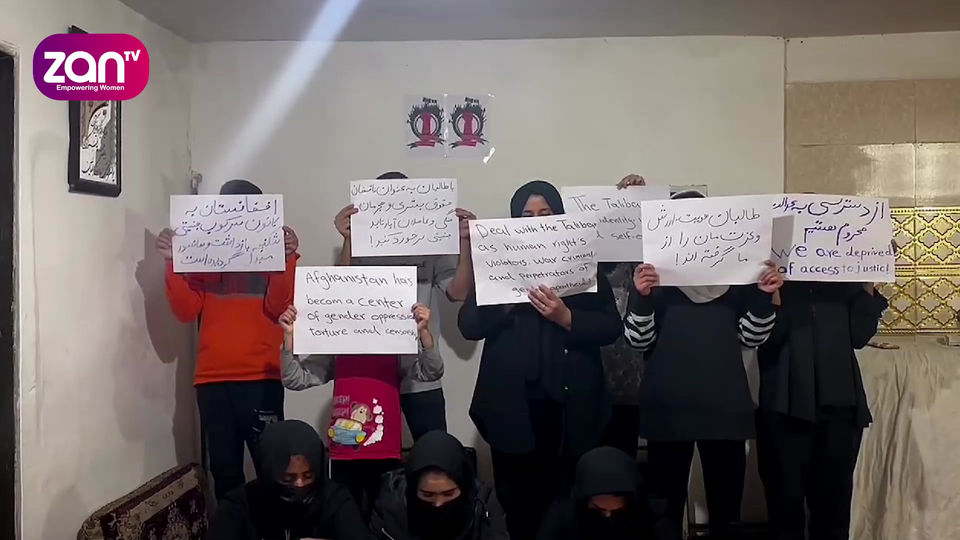 zan TV
Empowering Women
افغانستان به
کانون سرکوب جنسیتی
شکنجه، بازداشت و سانسور
مبدل گردیده است
با طالبان به عنوان ناقضان
حقوق بشری و مجرمان
جنگی و عاملان آپارتاید
جنسیتی برخورد کنید!
Afghanistan has
become a center
of gender oppression
torture and
Deal with the Taliban
as human right's
violators, war criminal
and perpetrators of
gender apartheid
The Taliban
identity
self-
طالبان هویت، ارزش
و عزت مان را از
ما گرفته اند!
از دسترسی به عدالت
محروم هستیم
We are deprived
of access to justice